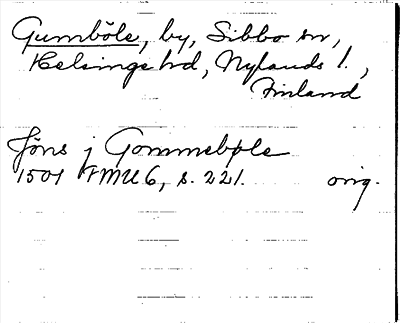 Gumböle, by, Sibbo sn,
Helsinge hd, Nylands l.,
Finland
Jöns j Gommebøle
1501 FMU 6, s. 221. orig.